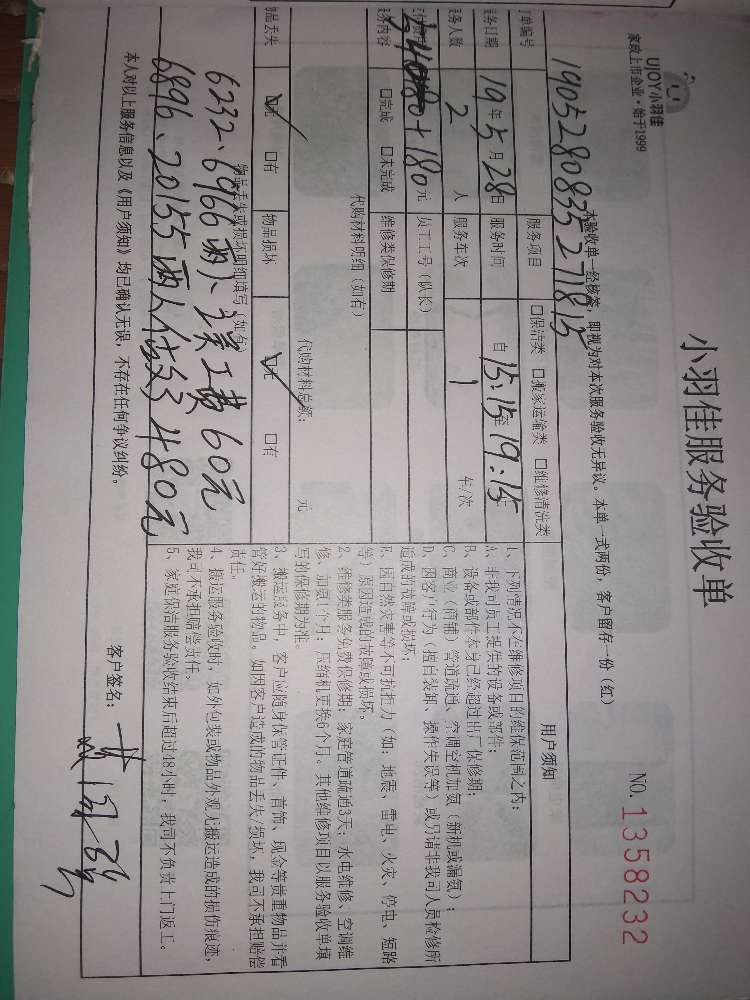 UJOY小羽佳
家政上市企业·始于1999
小羽佳服务验收单
NO. 1358232
本验收单一经核签，即视为对本次服务验收无异议。本单一式两份，客户留存一份（红）
订单编号 1905280835271815
服务项目 □保洁类 □搬家运输类 □维修清洗类
服务日期 19年5月28日 服务时间 自15:15至19:15
服务人数 2 人 服务车次 1 车/次
480+180元 员工工号（队长）
服务内容 □完成 □未完成 维修类保修期
代购材料明细（如有）
代购材料总额： 元
物品丢失 ☑无 □有 物品损坏 ☑无 □有
物品丢失或损坏明细填写（如有）
6232、6966两人
误工费60元
6896、20155两人
480元
本人对以上服务信息以及《用户须知》均已确认无误，不存在任何争议纠纷。
客户签名：
用户须知
1、下列情况不在维修项目的维保范围之内：
A、非我司员工提供的设备或部件；
B、设备或部件本身已经超过出厂保修期；
C、商业（商铺）管道疏通、空调空机加氨（新机或漏氨）；
D、因客户行为（擅自装卸、操作失误等）或另请非我司人员检修所
造成的故障或损坏；
E、因自然灾害等不可抗拒力（如：地震、雷电、火灾、停电、短路
等）原因造成的故障或损坏。
2、维修类服务免费保修期：家庭管道疏通3天；水电维修、空调维
修、加氨1个月；压缩机更换6个月。其他维修项目以服务验收单填
写的保修期为准。
3、搬运服务中，客户应随身保管证件、首饰、现金等贵重物品并看
管好搬运的物品。如因客户造成的物品丢失/损坏，我司不承担赔偿
责任。
4、搬运服务验收时，如外包装或物品外观无搬运造成的损伤痕迹，
我司不承担赔偿责任。
5、家庭保洁服务验收结束后超过48小时，我司不负责上门返工。